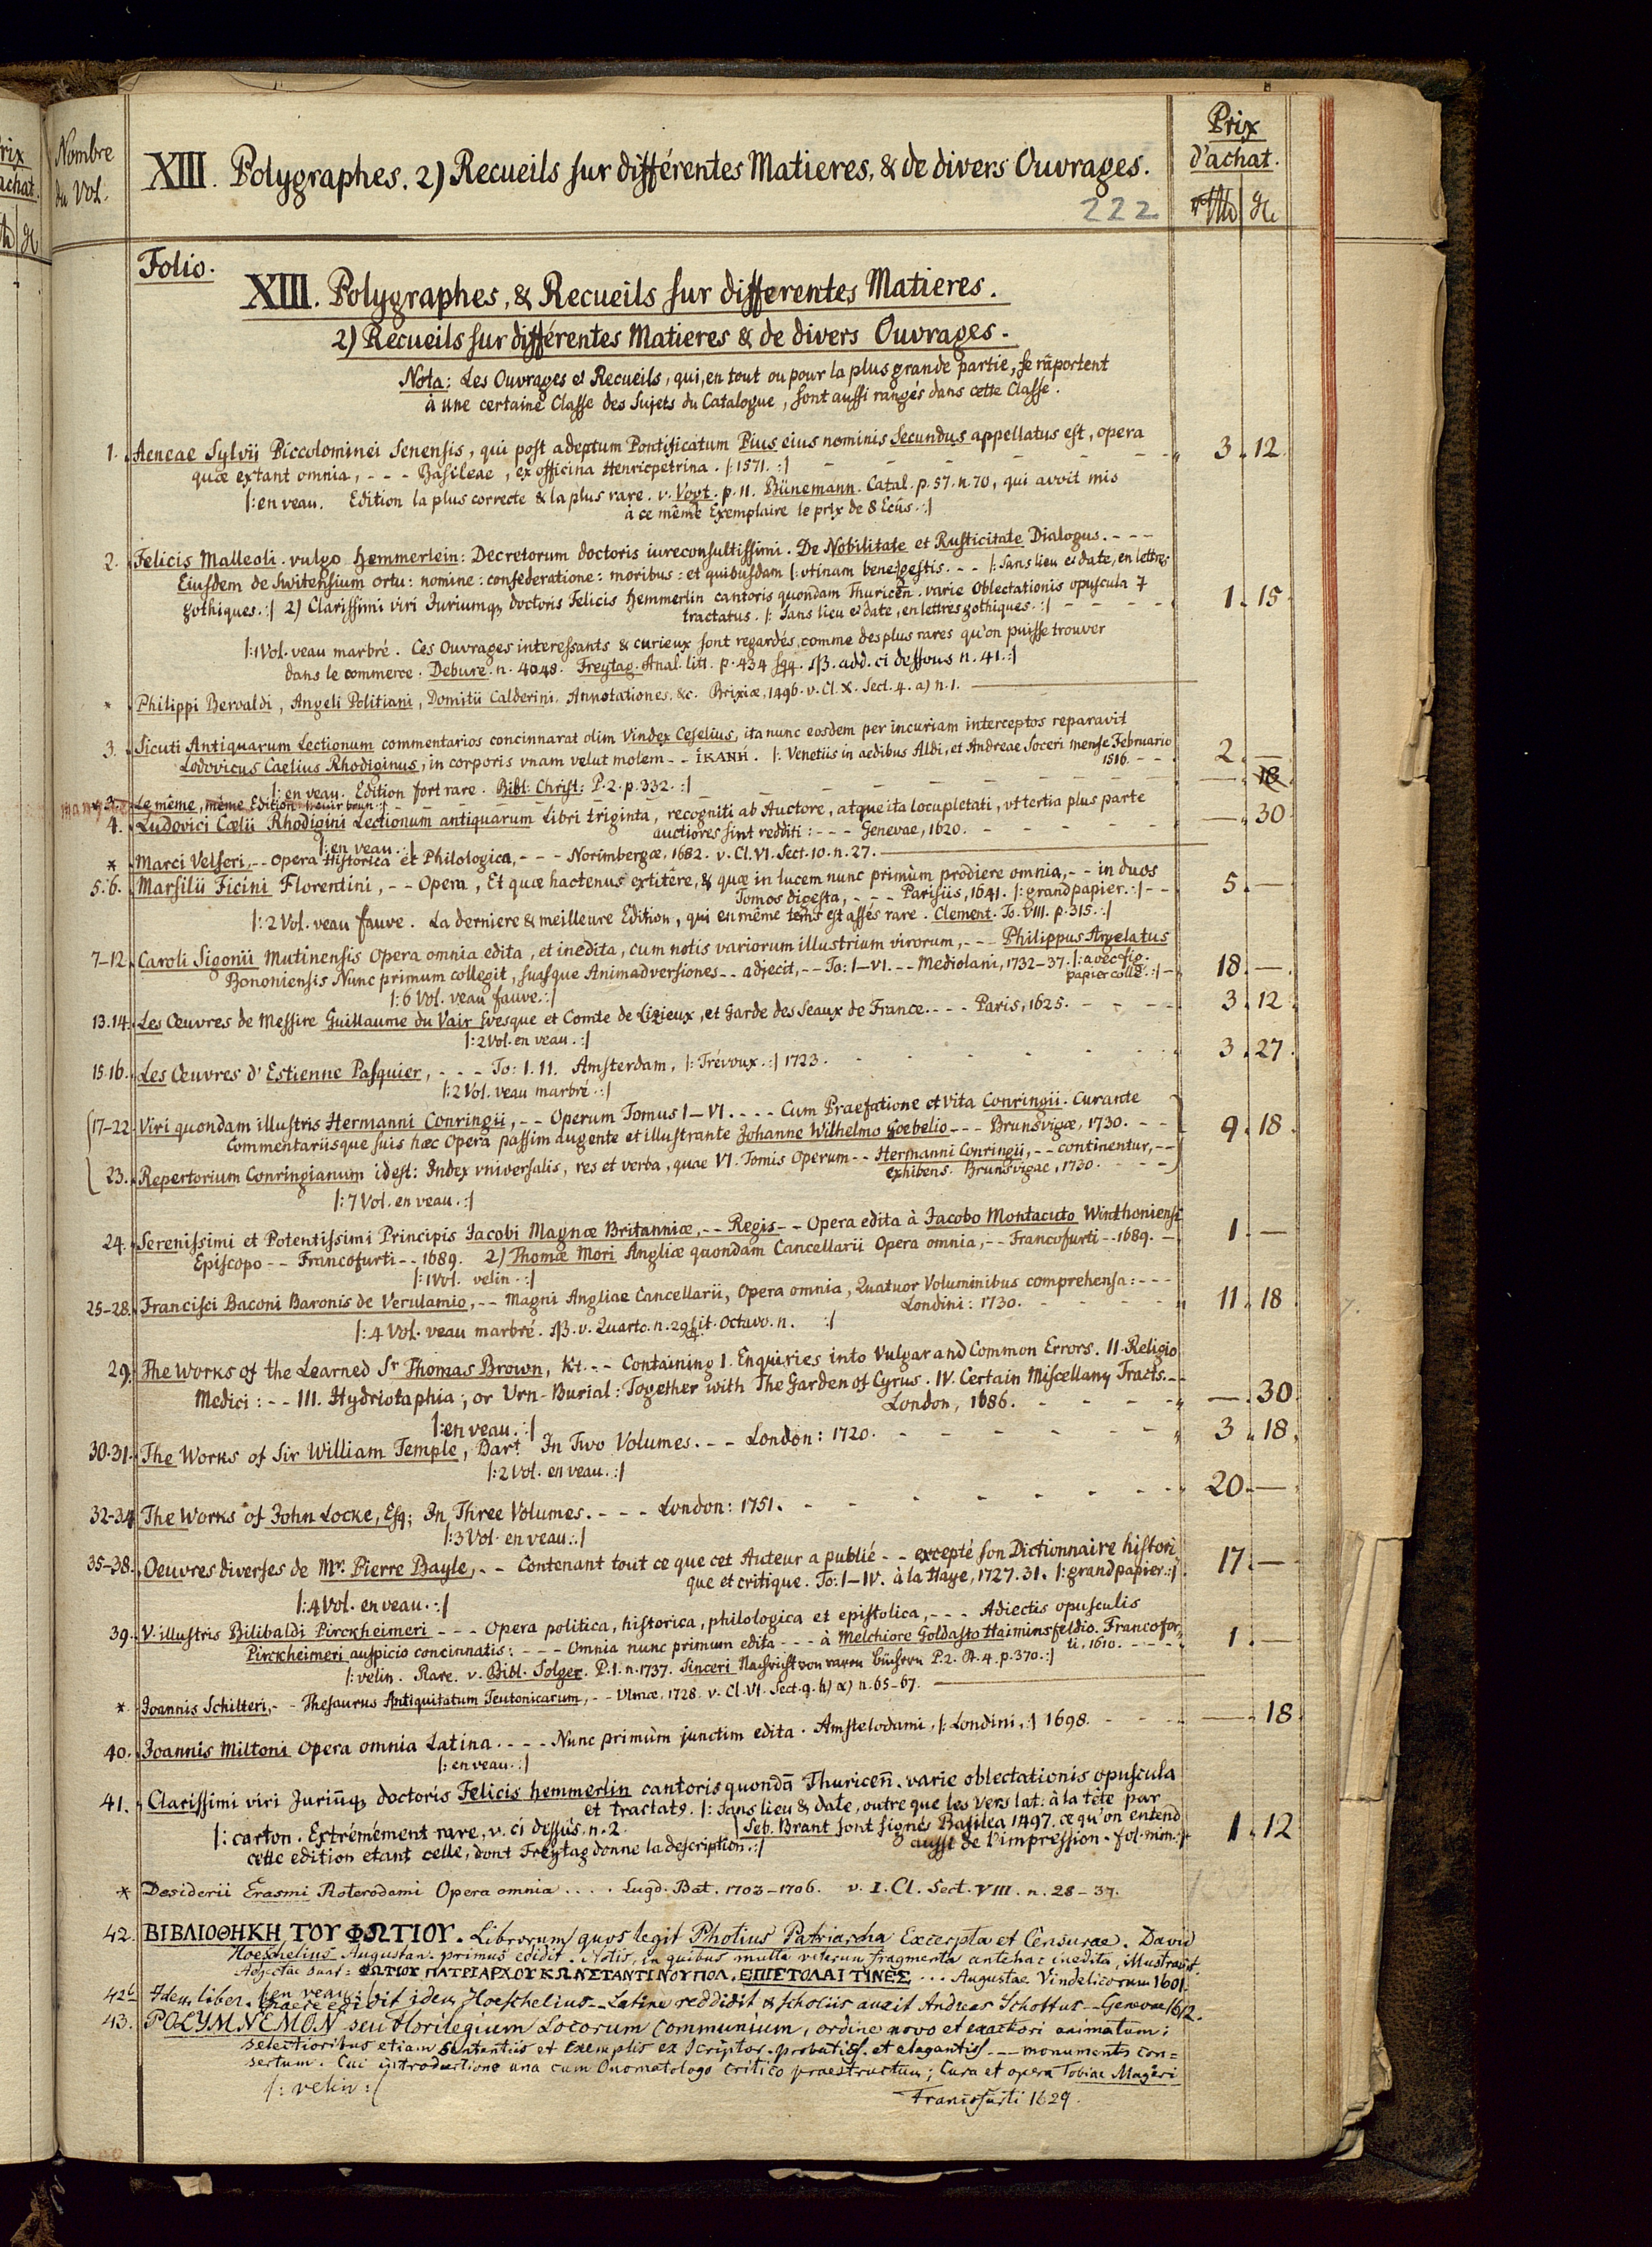 Nombre du Vol.
XIII. Polygraphes. 2) Recueils sur différentes Matieres, & de divers Ouvrages.
Prix d'achat.
222
Folio.
XIII. Polygraphes, & Recueils sur differentes Matieres.
2) Recueils sur différentes Matieres & de divers Ouvrages.
Nota: Les Ouvrages et Recueils, qui, en tout ou pour la plus grande partie, se raportent
à une certaine Classe des Sujets du Catalogue, sont aussi rangés dans cette Classe.
1. Aeneae Sylvii Piccolominei Senensis, qui post adeptum Pontificatum Pius eius nominis Secundus appellatus est, opera
quæ extant omnia, - - - Basileae, ex officina Henricpetrina. |: 1571. :| - - - 3. 12.
|: en veau. Edition la plus correcte & la plus rare. v. Vogt. p. 11. Bünemann. Catal. p. 57. n. 70, qui avoit mis
à ce même Exemplaire le prix de 8 Ecûs. :|
2. Felicis Malleoli. vulgo hemmerlein: Decretorum doctoris iureconsultissimi. De Nobilitate et Rusticitate Dialogus. - - -
Eiusdem de Switensium ortu: nomine: confederatione: moribus: et quibusdam |: vtinam bene :| gestis. - - |: Sans lieu et date, en lettres
gothiques. :| 2) Clarissimi viri Juriumq doctoris Felicis hemmerlin cantoris quondam Thuricen. varie Oblectationis opuscula 7
tractatus. |: Sans lieu et date, en lettres gothiques. :| - - - 1. 15
|: 1 Vol. veau marbré. Ces Ouvrages interessants & curieux sont regardés, comme des plus rares qu'on puisse trouver
dans le commerce. Debure. n. 4048. Freytag. Anal. litt. p. 434 sqq. NB. add. ci dessous n. 41. :|
* Philippi Bervaldi, Angeli Politiani, Domitii Calderini. Annotationes. &c. Brixiæ, 1496. v. Cl. X. Sect. 4. a) n. 1.
3. Sicuti Antiquarum Lectionum commentarios concinnarat olim Vindex Ceselius, ita nunc eosdem per incuriam interceptos reparavit
Lodovicus Caelius Rhodiginus, in corporis vnam velut molem - - ἱΚΑΝΗ. |: Venetiis in aedibus Aldi, et Andreae Soceri mense Februario
1516. - - 2. —
|: en veau. Edition fort rare. Bibl. Christ: P. 2. p. 332. :|
* 3. Le même, même Edition |: cuir brun :| - - - — 18
4. Ludovici Cœlii Rhodigini Lectionum antiquarum Libri triginta, recogniti ab Auctore, atque ita locupletati, vt tertia plus parte
auctiores sint redditi: - - - Genevae, 1620. - - - —. 30
|: en veau. :|
* Marci Velseri, - - Opera Historica et Philologica, - - - Norimbergæ, 1682. v. Cl. VI. Sect. 10. n. 27.
5. 6. Marsilii Ficini Florentini, - - Opera, Et quæ hactenus extitêre, & quæ in lucem nunc primùm prodiere omnia, - - in duos
Tomos digesta, - - - Parisiis, 1641. |: grand papier. :| - - 5. —
|: 2 Vol. veau fauve. La derniere & meilleure Edition, qui en même tems est assés rare. Clement. To. VIII. p. 315. :|
7–12. Caroli Sigonii Mutinensis Opera omnia edita, et inedita, cum notis variorum illustrium virorum, - - - Philippus Argelatus
Bononiensis Nunc primum collegit, suasque Animadversiones - - adjecit, - - To: I–VI. - - - Mediolani, 1732–37. |: avec fig.
papier collé. :| - 18. —
|: 6 Vol. veau fauve. :|
13. 14. Les Œuvres de Messire Guillaume du Vair Evesque et Comte de Lizieux, et Garde des Seaux de France. - - - Paris, 1625. - - - 3. 12
|: 2 Vol. en veau. :|
15. 16. Les Œuvres d'Estienne Pasquier, - - - To: I. II. Amsterdam, |: Trévoux. :| 1723. - - - 3. 27
|: 2 Vol. veau marbré. :|
17–22. Viri quondam illustris Hermanni Conringii, - - Operum Tomus I–VI. - - - Cum Praefatione et Vita Conringii. Curante
Commentariisque suis hæc Opera passim augente et illustrante Johanne Wilhelmo Goebelio - - - Brunsvigæ, 1730. - - 9. 18.
23. Repertorium Conringianum idest: Index vniversalis, res et verba, quae VI. Tomis Operum - - Hermanni Conringii, - - continentur, - -
exhibens. Brunsvigae, 1730. - - -
|: 7 Vol. en veau. :|
24. Serenissimi et Potentissimi Principis Jacobi Magnæ Britanniæ, - - Regis - - Opera edita à Jacobo Montacuto Winthoniensi
Episcopo - - Francofurti - - 1689. 2) Thomæ Mori Angliæ quondam Cancellarii Opera omnia, - - Francofurti - - 1689. - 1. —
|: 1 Vol. velin. :|
25–28. Francisci Baconi Baronis de Verulamio, - - Magni Angliae Cancellarii, Opera omnia, Quatuor Voluminibus comprehensa: - - -
Londini: 1730. - - - 11. 18
|: 4 Vol. veau marbré. NB. v. Quarto. n. 29. it. Octavo. n. :|
29. The Works of the Learned Sr Thomas Brown, Kt. - - Containing I. Enquiries into Vulgar and Common Errors. II. Religio
Medici: - - III. Hydriotaphia; or Urn-Burial: Together with The Garden of Cyrus. IV. Certain Miscellany Tracts. - -
London, 1686. - - - —. 30
|: en veau. :|
30. 31. The Works of Sir William Temple, Bart. In Two Volumes. - - London: 1720. - - - 3. 18.
|: 2 Vol. en veau. :|
32–34 The Works of John Locke, Esq; In Three Volumes. - - - London: 1751. - - - 20. —
|: 3 Vol. en veau. :|
35–38. Oeuvres diverses de Mr. Pierre Bayle, - - Contenant tout ce que cet Auteur a publié - - excepté son Dictionnaire histori
que et critique. To: I–IV. à la Haye, 1727. 31. |: grand papier. :| 17. —
|: 4 Vol. en veau. :|
39. V. illustris Bilibaldi Pirckheimeri - - - Opera politica, historica, philologica et epistolica, - - - Adiectis opusculis
Pirckheimeri auspicio concinnatis: - - - Omnia nunc primum edita - - - à Melchiore Goldasto Haiminsfeldio. Francofor,
ti, 1610. - - - 1. —
|: velin. Rare. v. Bibl. Solger. P. 1. n. 1737. Sinceri Nachricht von raren Büchern P. 2. St. 4. p. 370. :|
* Joannis Schilteri, - - Thesaurus Antiquitatum Teutonicarum, - - Ulmæ, 1728. v. Cl. VI. Sect. 9. h) α) n. 65–67.
40. Joannis Miltoni Opera omnia Latina. - - - Nunc primùm junctim edita. Amstelodami, |: Londini, :| 1698. - - - —. 18.
|: en veau. :|
41. Clarissimi viri Juriũq doctoris Felicis hemmerlin cantoris quondã Thuriceñ. varie oblectationis opuscula
et tractat9. |: sans lieu & date, outre que les vers lat: à la tête par
|: carton. Extrémément rare, v. ci dessus. n. 2. Seb. Brant sont signés Basilea 1497. ce qu'on entend
cette edition etant celle, dont Freytag donne la description. :| aussi de l'impression. fol. min. :| 1. 12
* Desiderii Erasmi Roterodami Opera omnia . . . . Lugd. Bat. 1703–1706. v. I. Cl. Sect. VIII. n. 28–37.
42. ΒΙΒΛΙΟΘΗΚΗ ΤΟΥ ΦΩΤΙΟΥ. Librorum quos legit Photius Patriarcha Excerpta et Censurae. David
Hoeschelius Augustan. primus edidit. Notis, in quibus multa veterum fragmenta antehac inedita, illustravit.
Adjectae sunt: ΦΩΤΙΟΥ ΠΑΤΡΙΑΡΧΟΥ ΚΩΝΣΤΑΝΤΙΝΟΥΠΟΛ. ΕΠΙΣΤΟΛΑΙ ΤΙΝΕΣ . . . Augustae Vindelicorum 1601.
|: en veau :|
42b Idem liber. Graece edidit idem Hoeschelius - - Latine reddidit & scholiis auxit Andreas Schottus - - Genevae 1612.
43. POLYMNEMON seu Florilegium Locorum Communium, ordine novo et exactiori animatum;
selectioribus etiam Sententiis et Exemplis ex Scriptor. probatiss. et elegantiss - - - monumentis con=
sertum. Cui introductione una cum Onomatologo Critico praestructum; Cura et opera Tobiae Mageri
|: velin :| Francofurti 1629.